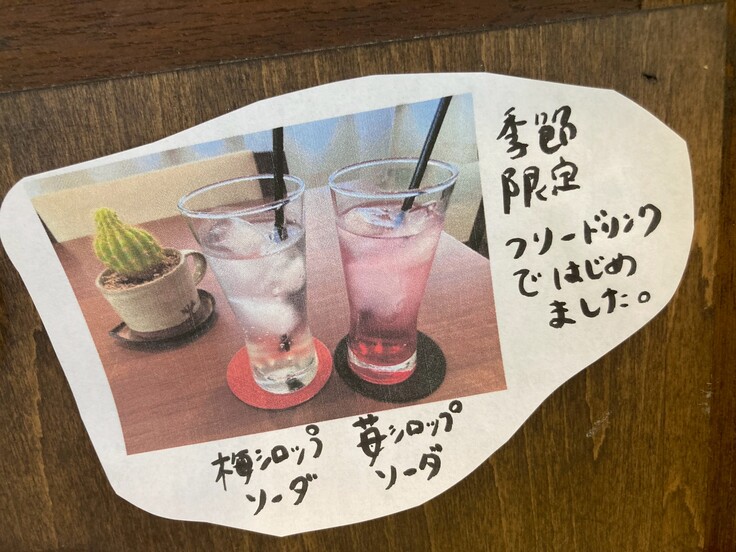 季節
限定
フリードリンク
ではじめ
ました。
梅シロップ
ソーダ
苺シロップ
ソーダ